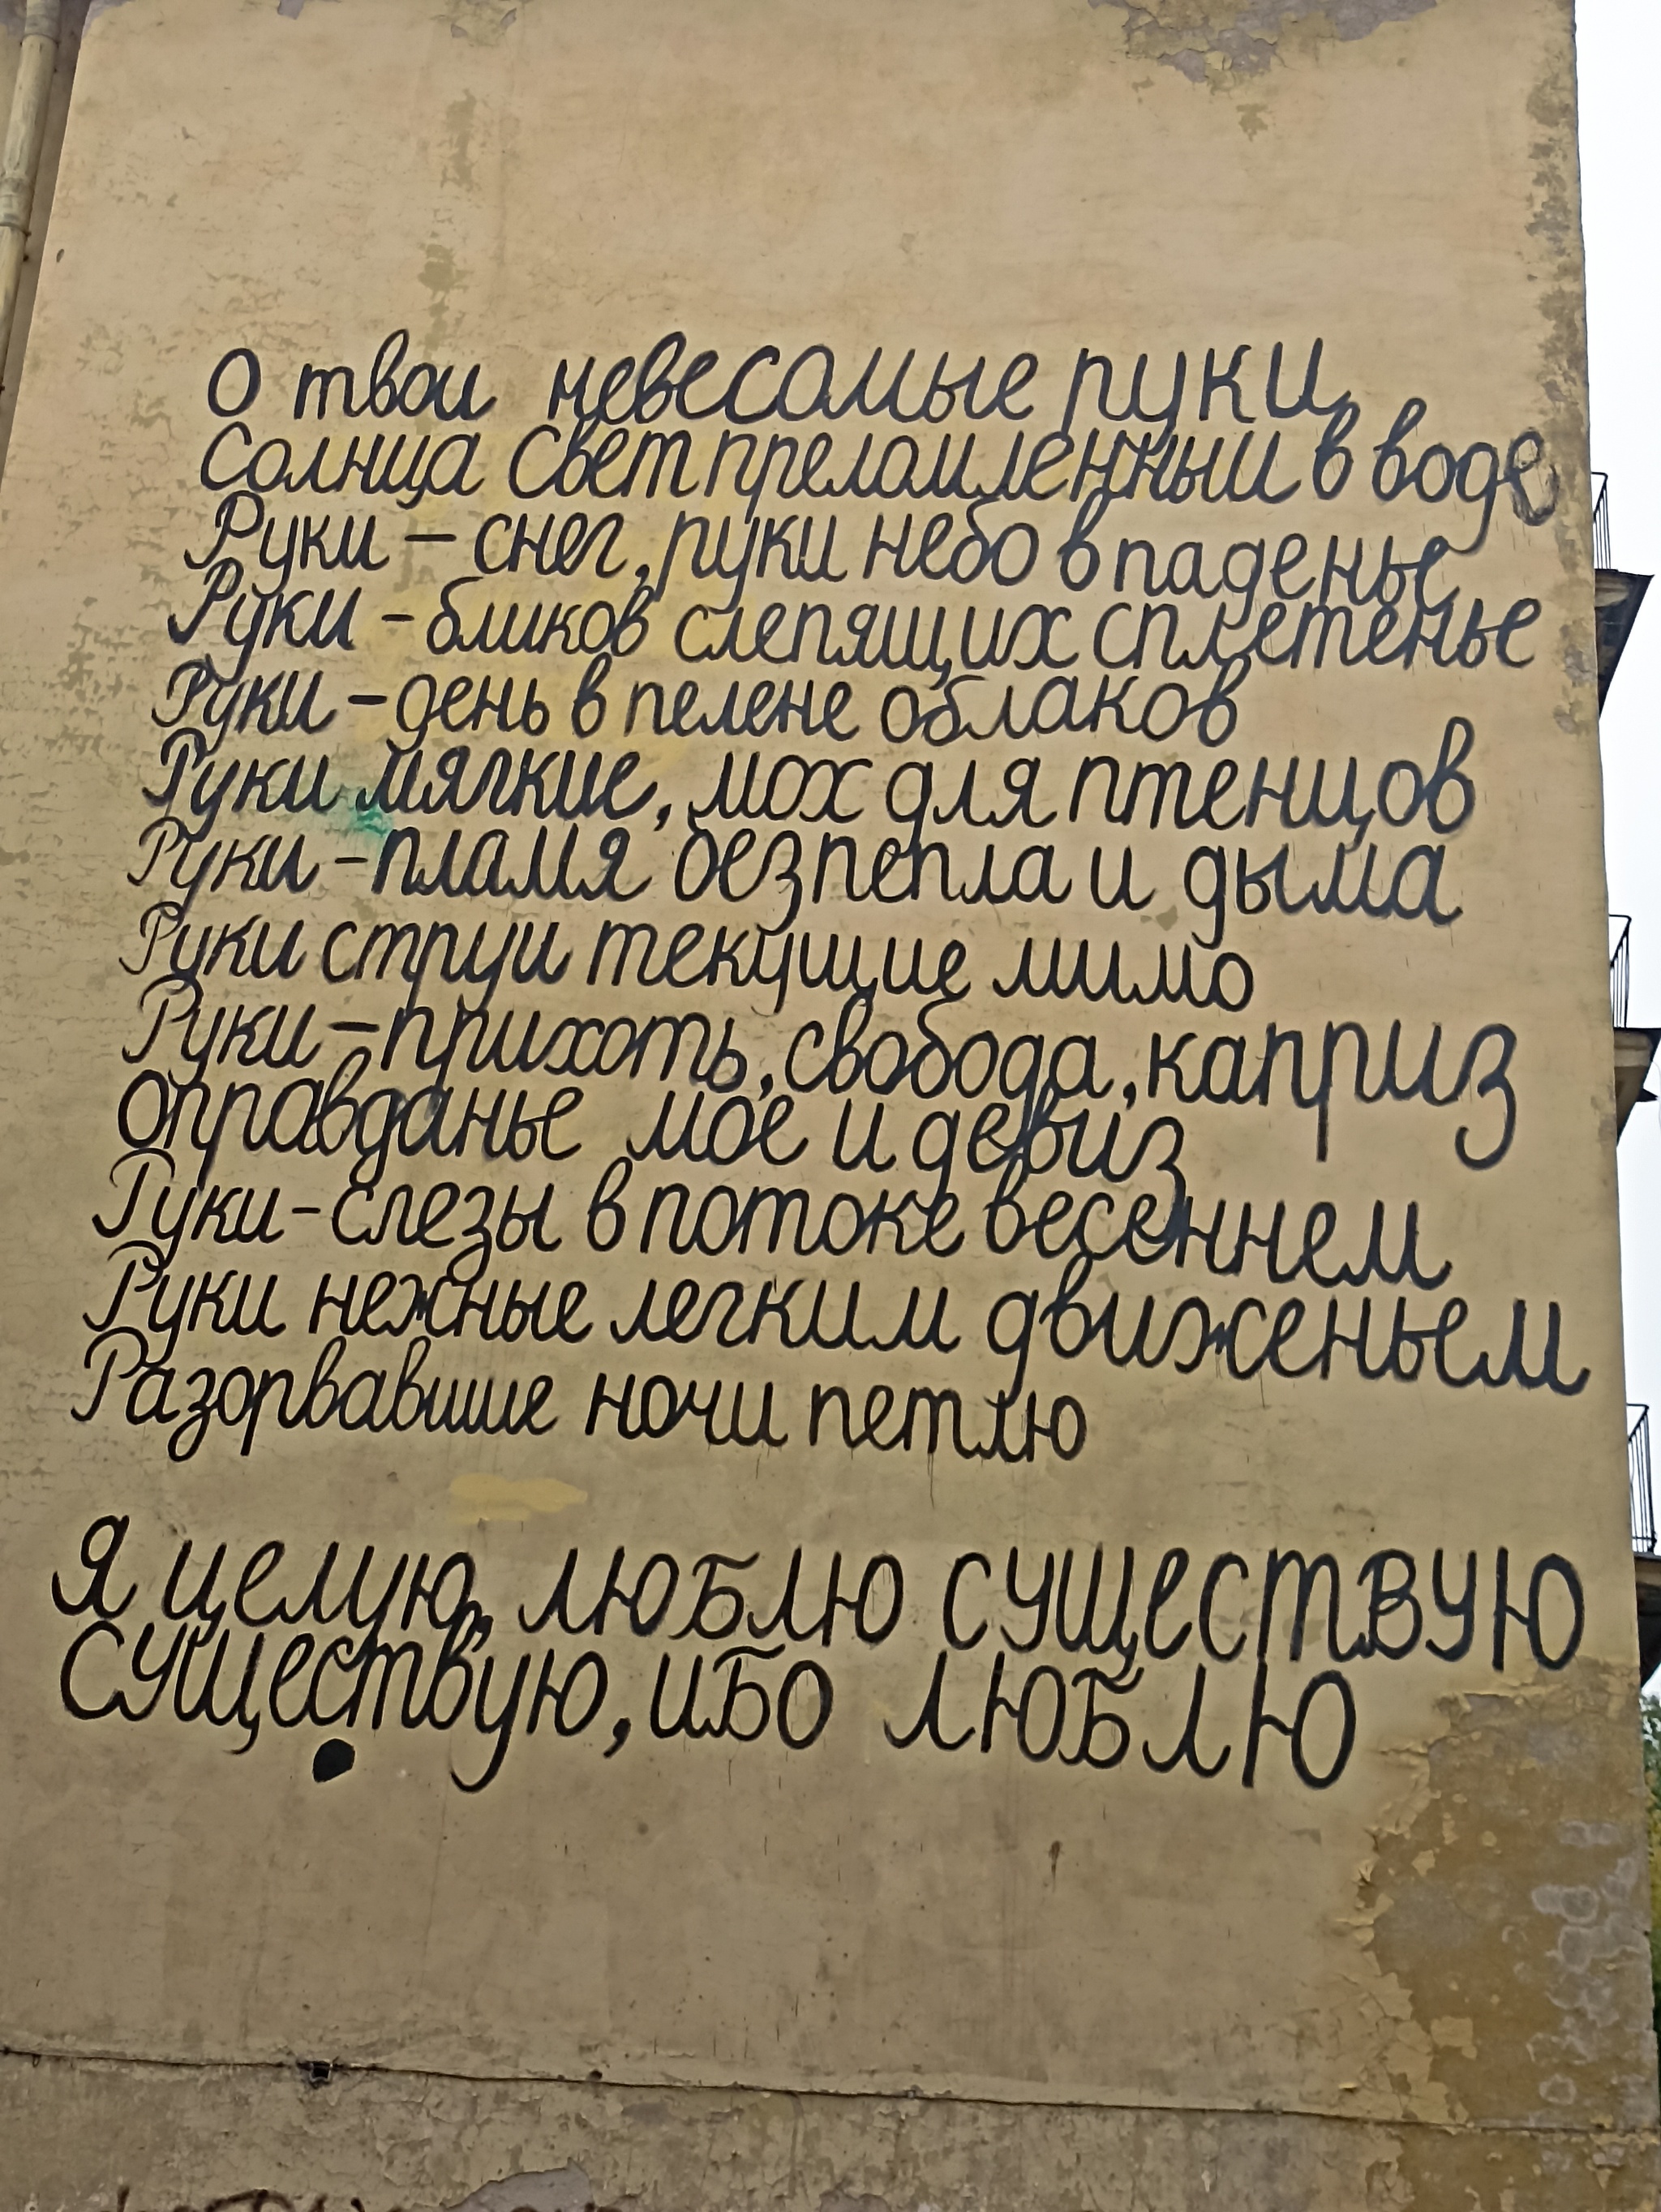 О твои невесомые руки
Солнца свет преломленный в воде
Руки – снег, руки небо в паденье
Руки – бликов слепящих сплетенье
Руки – день в пелене облаков
Руки мягкие, мох для птенцов
Руки – пламя без пепла и дыма
Руки струи текущие мимо
Руки – прихоть, свобода, каприз
Оправданье мое и девиз
Руки – слезы в потоке весеннем
Руки нежные легким движеньем
Разорвавшие ночи петлю
Я целую, люблю существую
Существую, ибо люблю